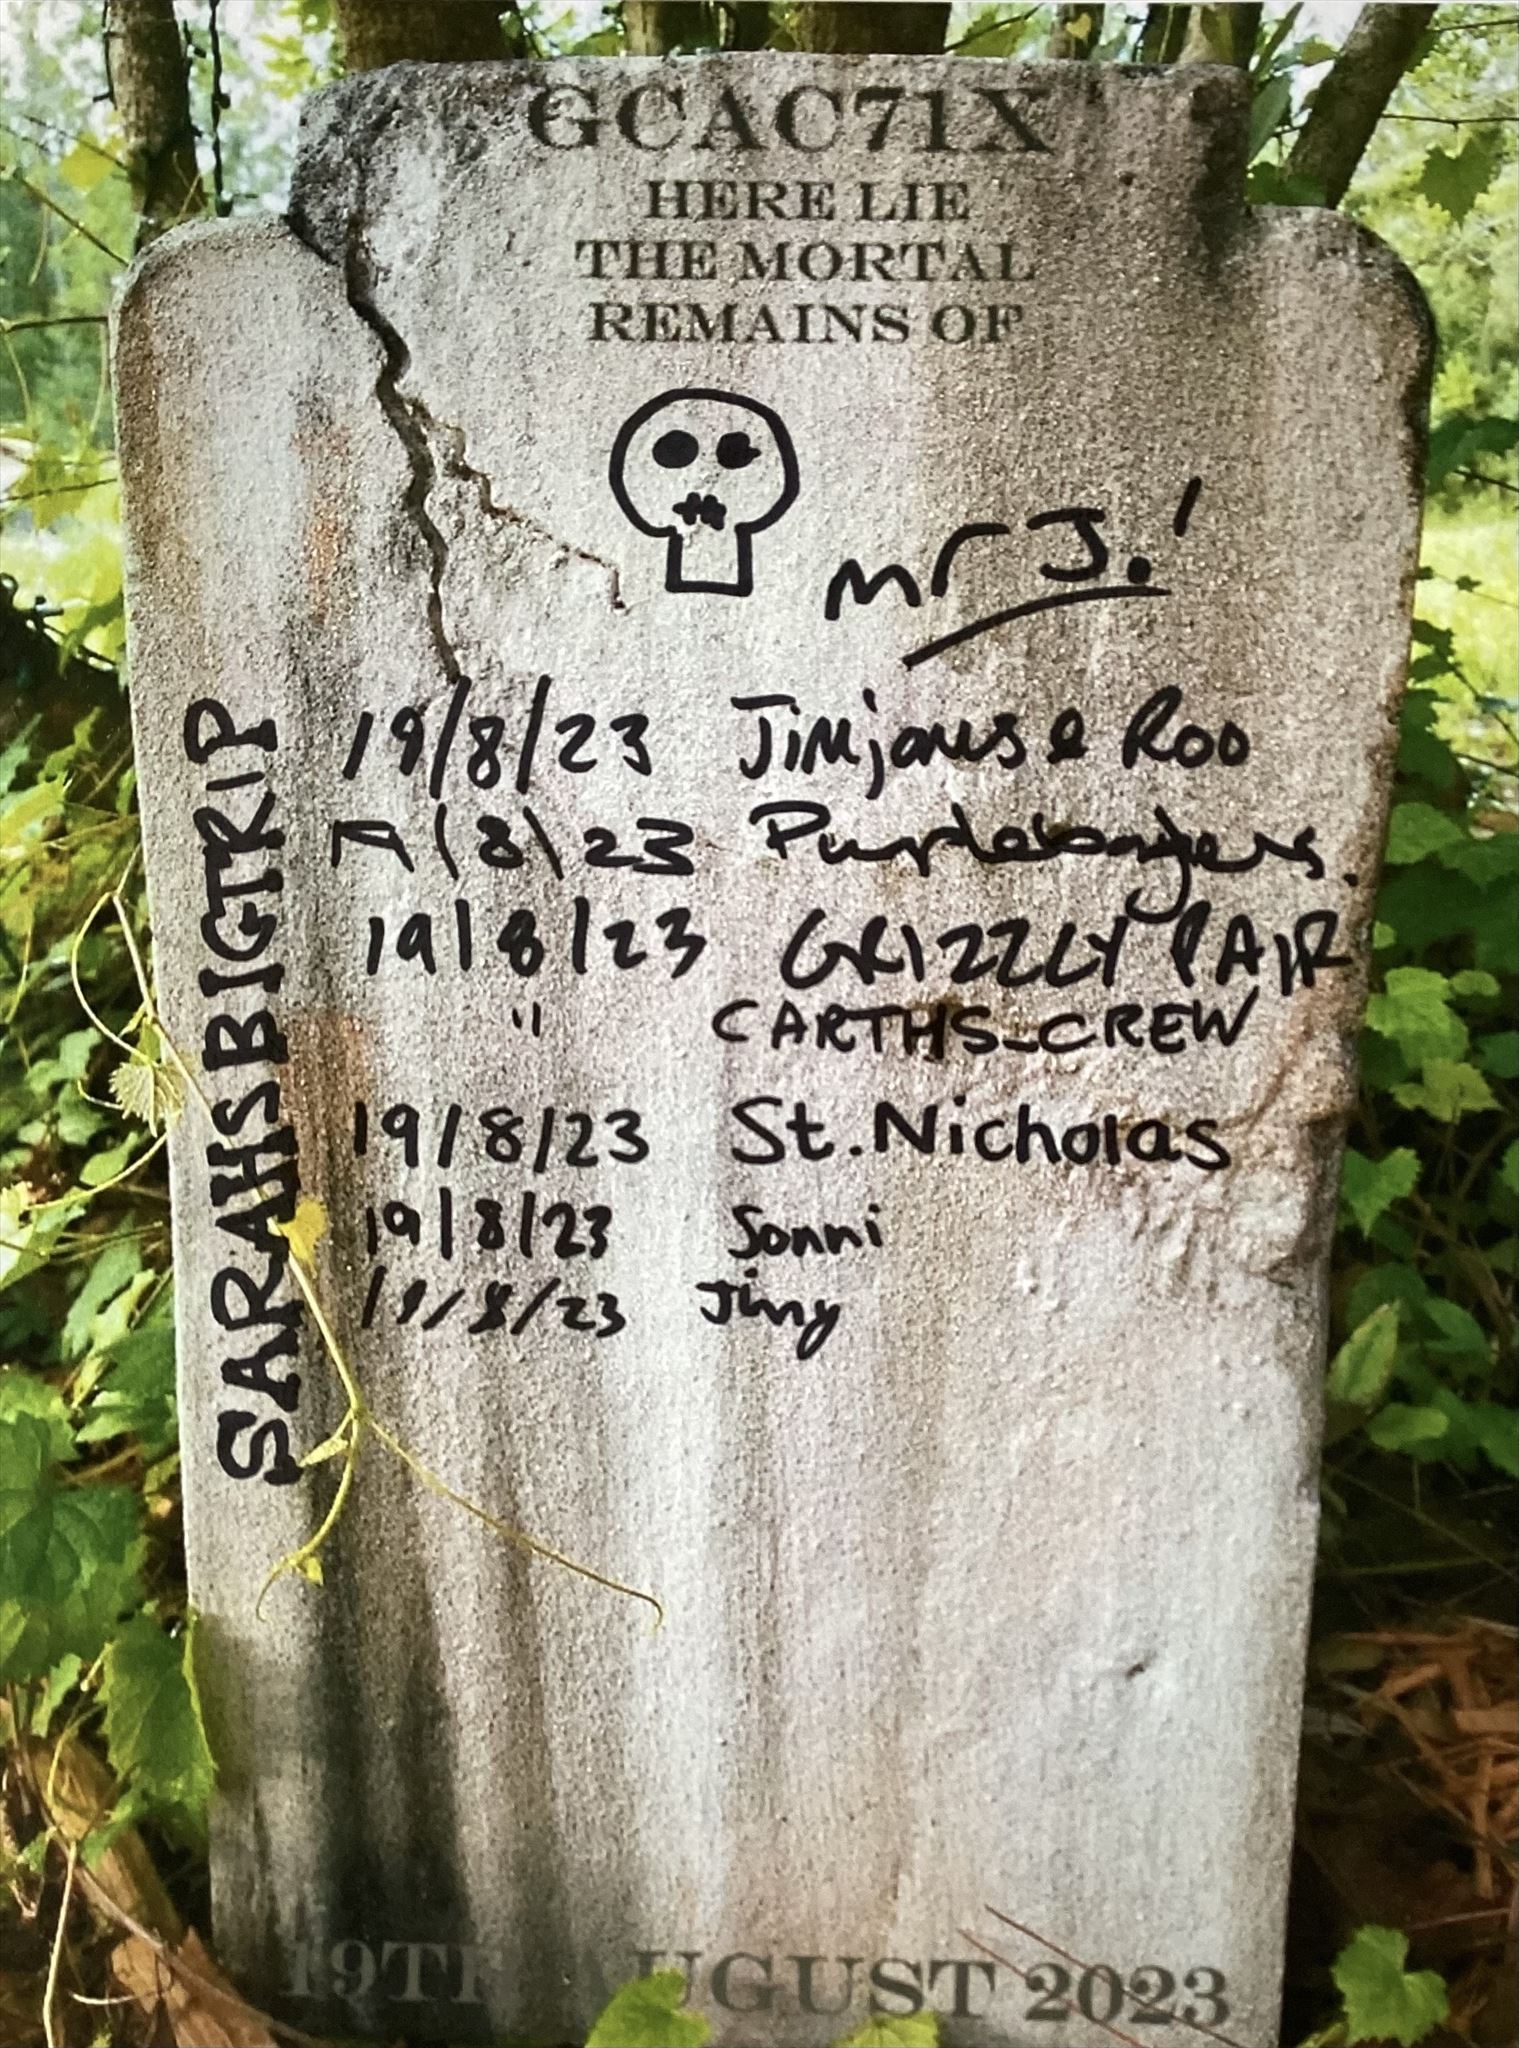 GCAC71X
HERE LIE
THE MORTAL
REMAINS OF
mr J.!
SARAHSBIGTRIP
19/8/23 Jimjams & Roo
19/8/23 Purplebadgers.
19/8/23 GRIZZLY PAIR
" CARTHS_CREW
19/8/23 St. Nicholas
19/8/23 Sonni
19/8/23
19TH AUGUST 2023